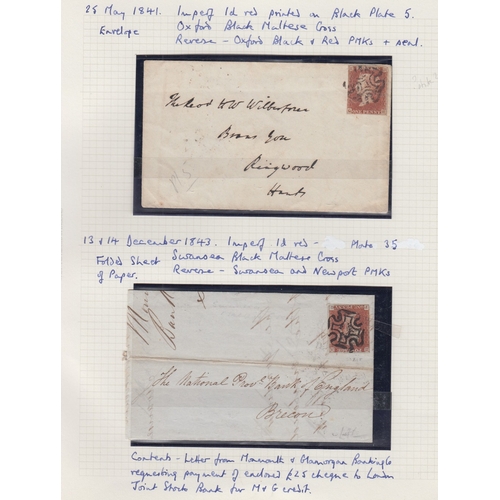 25 May 1841. Imperf 1d red printed on Black Plate 5.
Envelope Oxford Black Maltese Cross
Reverse - Oxford Black & Red PMKs + seal.
Revd W Wilberforce
Brans Gore
Ringwood
Hants
13 & 14 December 1843. Imperf 1d red - Plate 35
Folded Sheet Swansea Black Maltese Cross
of Paper. Reverse - Swansea and Newport PMKs
The National Provl Bank of England
Brecon
Contents - Letter from Monmouth & Glamorgan Banking Co
requesting payment of enclosed £25 cheque to London
Joint Stock Bank for M & G credit.